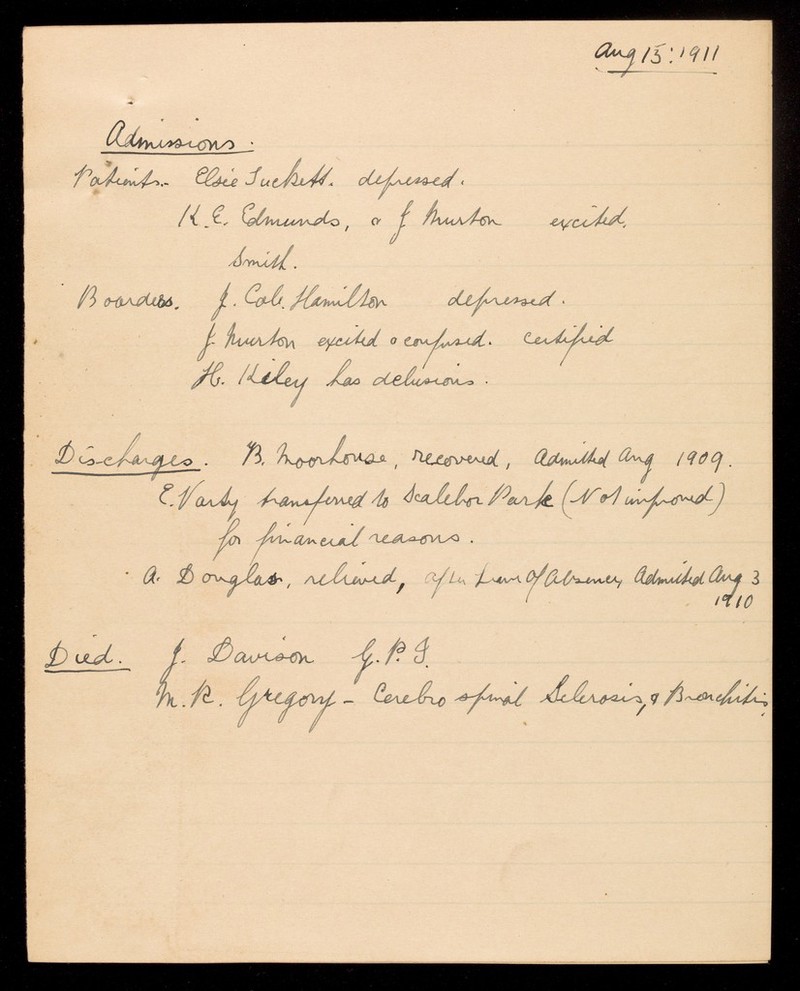 Aug 15: 1911
Admissions.
Patients- Elsie Tuckett. depressed.
K. E. Edmunds, & J Murton excited.
Smith.
Boarders. J. Cole. Hamilton depressed.
J. Murton excited & confused. certified
H. Kiley has delusions.
Discharges. B. Moorhouse, recovered, Admitted Aug 1909.
E. Varty transferred to Scalebor Park (Not improved)
for financial reasons.
A. Douglas, relieved, after Leave of Absence, Admitted Aug 3
1910
Died. J. Davison G. P. I.
M. R. Gregory - Cerebro spinal Sclerosis, & Bronchitis.